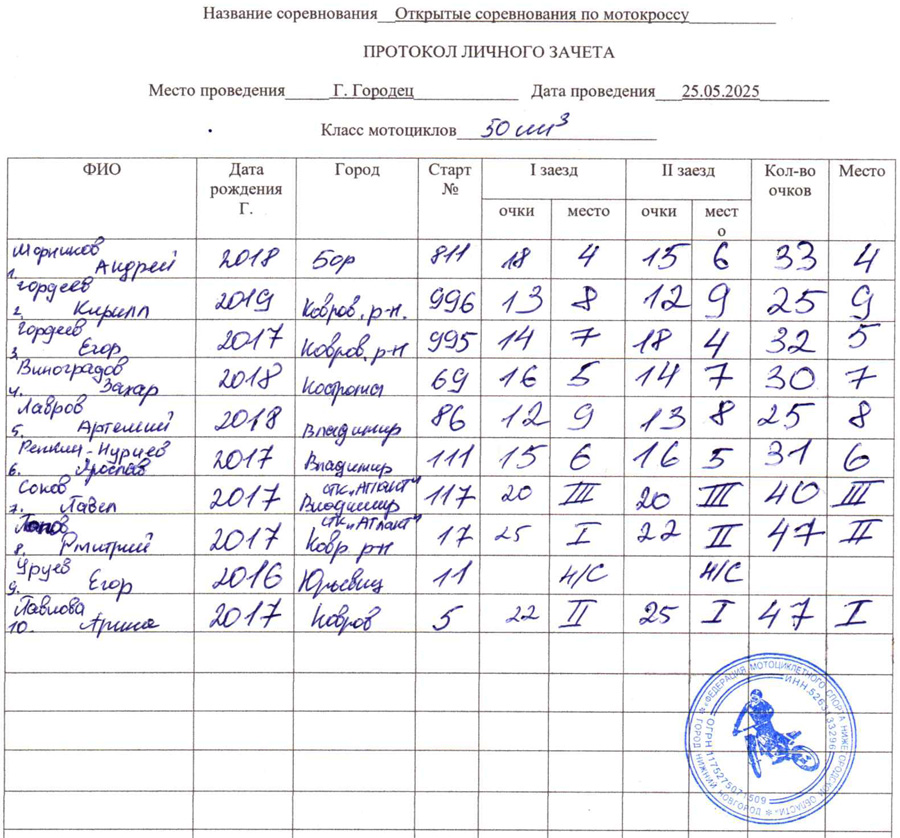 Название соревнования Открытые соревнования по мотокроссу
ПРОТОКОЛ ЛИЧНОГО ЗАЧЕТА
Место проведения Г. Городец Дата проведения 25.05.2025
Класс мотоциклов 50 см³
ФИО Дата рождения Г. Город Старт № I заезд II заезд Кол-во очков Место
очки место очки место
1. Андрей 2018 Бор 811 18 4 15 6 33 4
2. Гордеев Кирилл 2019 Ковров. р-н. 996 13 8 12 9 25 9
3. Гордеев Егор 2017 Ковров. р-н 995 14 7 18 4 32 5
4. Виноградов Захар 2018 Кострома 69 16 5 14 7 30 7
5. Лавров Артемий 2018 Владимир 86 12 9 13 8 25 8
6. Ярослав 2017 Владимир 111 15 6 16 5 31 6
7. Соков Павел 2017 стк "Атлант" Владимир 117 20 III 20 III 40 III
8. Попов Дмитрий 2017 стк "Атлант" Ковр р-н 17 25 I 22 II 47 II
9. Егор 2016 Юрьевец 11 н/с н/с
10. Павлова Арина 2017 Ковров 5 22 II 25 I 47 I
ФЕДЕРАЦИЯ МОТОЦИКЛЕТНОГО СПОРТА НИЖЕГОРОДСКОЙ ОБЛАСТИ
ГОРОД НИЖНИЙ НОВГОРОД